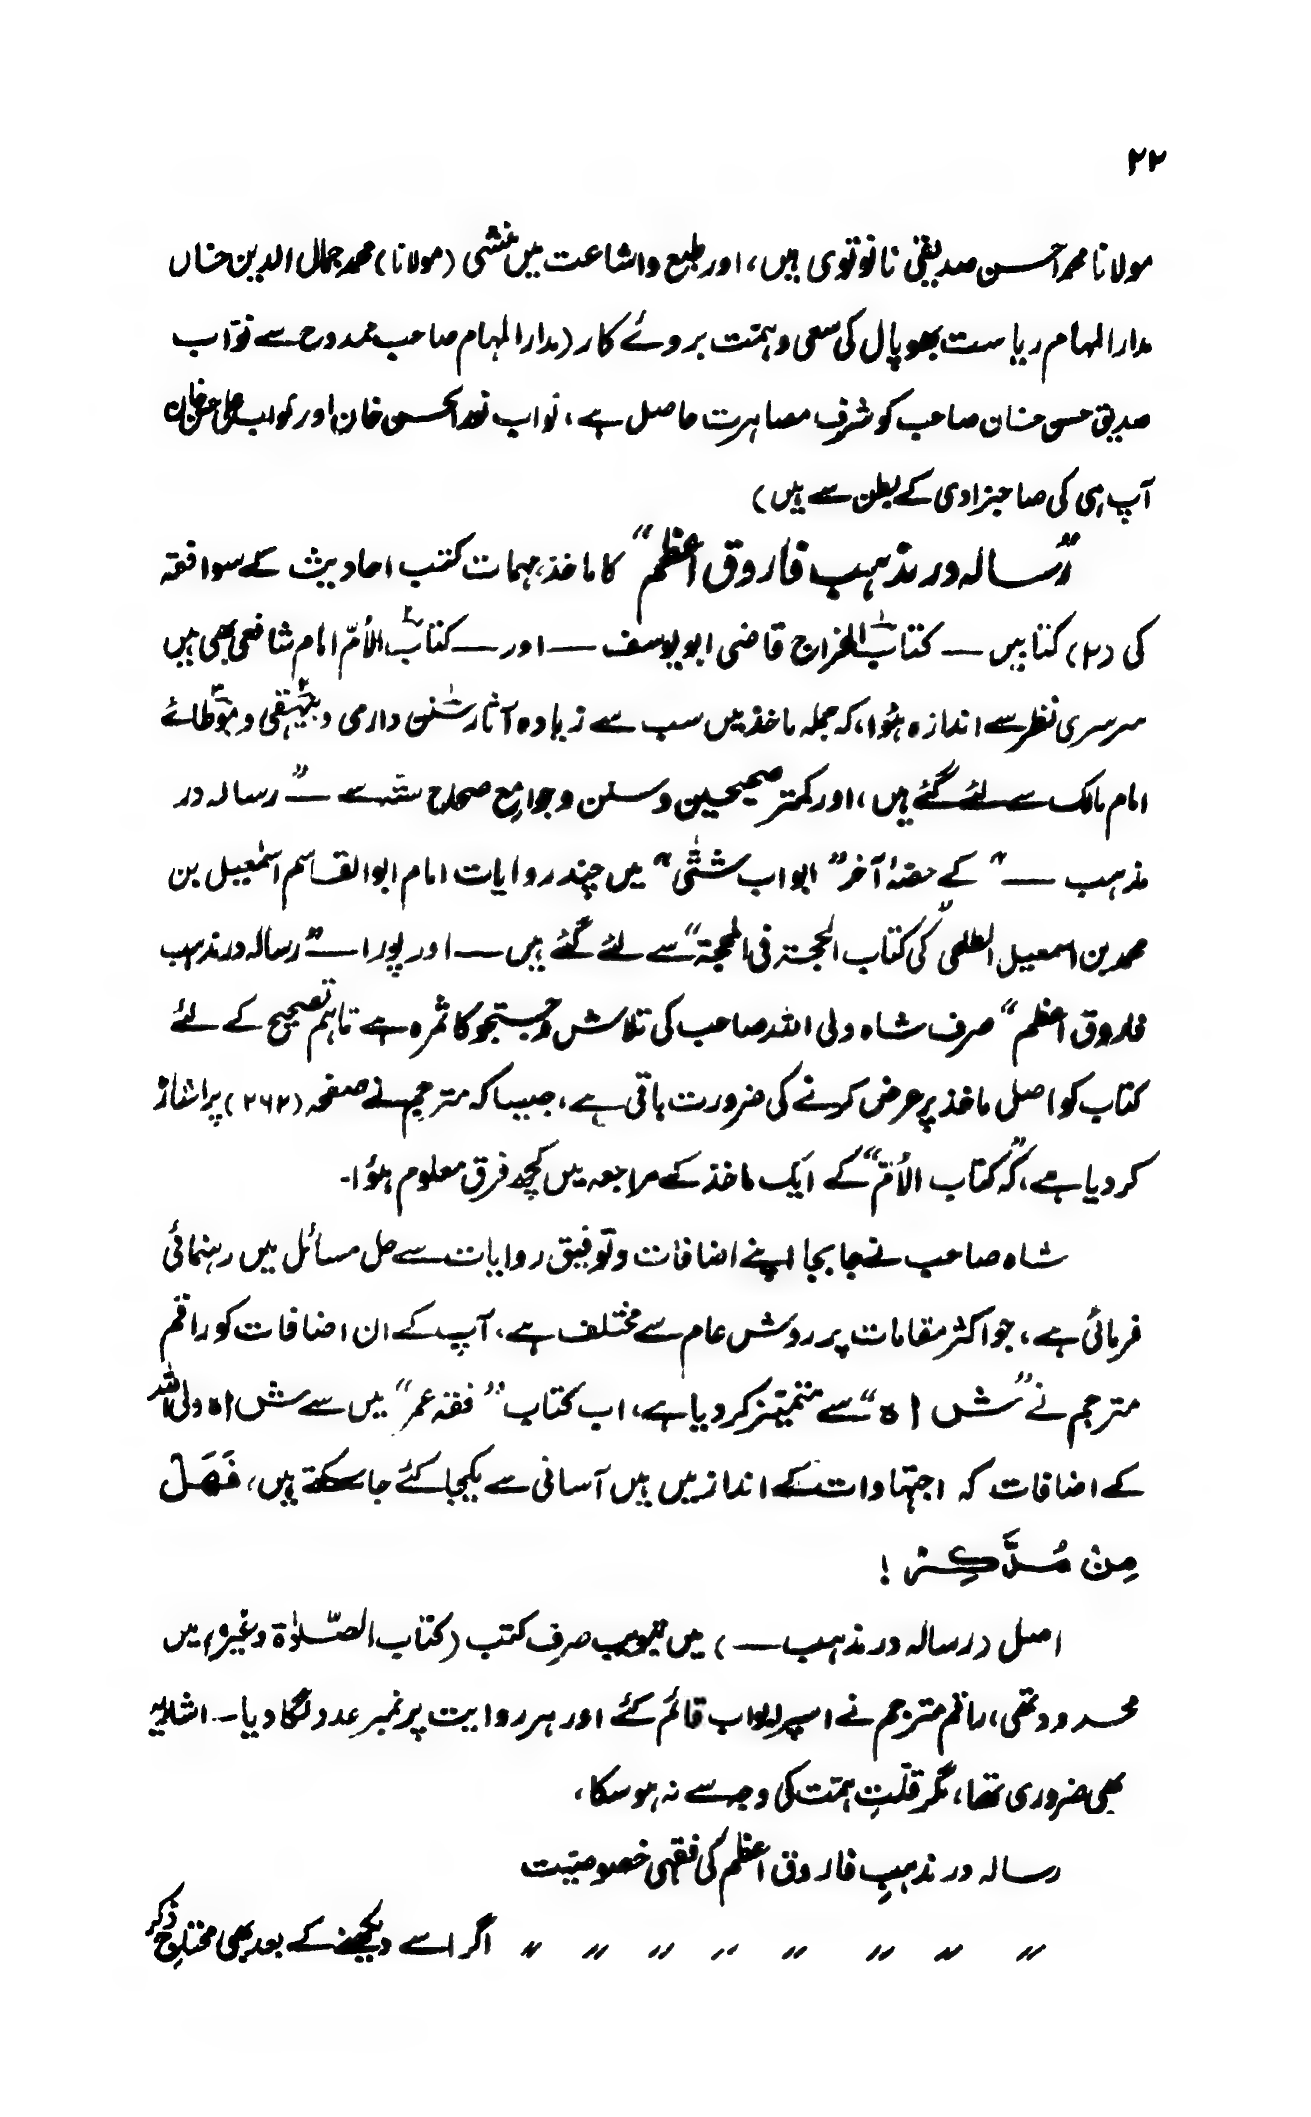 ۲۲
مولانا محمد احسن صدیقی نانوتوی ہیں، اور طبع و اشاعت میں منشی (مولانا) محمد جمال الدین خاں
مدار المہام ریاست بھوپال کی سعی و ہمّت بروئے کار (مدار المہام صاحب ممدوح سے نوّاب
صدیق حسن خان صاحب کو شرف مصاہرت حاصل ہے، نواب نور الحسن خان اور نواب علی حسن خان
آپ ہی کی صاحبزادی کے بطن سے ہیں)
”رسالہ در مذہب فاروق اعظم“ کا ماخذ، مہمات کتب احادیث کے سوا فقہ
کی (۲) کتابیں — کتاب الخراج قاضی ابو یوسف — اور — کتاب الأمّ امام شافعی بھی ہیں
سرسری نظر سے اندازہ ہؤا، کہ جملہ ماخذ میں سب سے زیادہ آثار سنن دارمی و بیہقی و موطائے
امام مالک سے لئے گئے ہیں، اور کمتر صحیحین و سنن و جوامع صحاح ستّہ سے — ”رسالہ در
مذہب —“ کے حصۂ آخر ”ابواب شتّٰی“ میں چند روایات امام ابو القاسم اسمٰعیل بن
محمد بن اسمعیل الطلحی کی ”کتاب الحجتہ فی المحجۃ“ سے لئے گئے ہیں — اور پورا — ”رسالہ در مذہب
فاروق اعظم“ صرف شاہ ولی اللہ صاحب کی تلاش و جستجو کا ثمرہ ہے تاہم تصحیح کے لئے
کتاب کو اصل ماخذ پر عرض کرنے کی ضرورت باقی ہے، جیسا کہ مترجم نے صفحہ (۲۶۲) پر اشارہ
کر دیا ہے، کہ ”کتاب الأمّ“ کے ایک ماخذ کے مراجعہ میں کچھ فرق معلوم ہؤا۔
شاہ صاحب نے جا بجا اپنے اضافات و توفیق روایات سے حل مسائل میں رہنمائی
فرمائی ہے، جو اکثر مقامات پر روش عام سے مختلف ہے، آپ کے ان اضافات کو راقم
مترجم نے ”ش ا ہ“ سے متمیّز کر دیا ہے، اب کتاب ”فقہ عمر“ میں سے ش ا ہ ولی اللہ
کے اضافات کہ اجتہادات کے انداز میں ہیں آسانی سے یکجا کئے جا سکتے ہیں، فَهَلْ
مِنْ مُدَّكِرْ !
اصل (رسالہ در مذہب —) میں تبویب صرف کتب (کتاب الصّلوٰۃ وغیرہ) میں
محدود تھی، راقم مترجم نے اسپر ابواب قائم کئے اور ہر روایت پر نمبر عدد لگا دیا۔ اشاریہ
بھی ضروری تھا، مگر قلّتِ ہمّت کی وجہ سے نہ ہو سکا،
رسالہ در مذہبِ فاروق اعظم کی فقہی خصوصیّت
〃 〃 〃 〃 〃 〃 〃 〃 اگر اسے دیکھنے کے بعد بھی محتاج ذکر